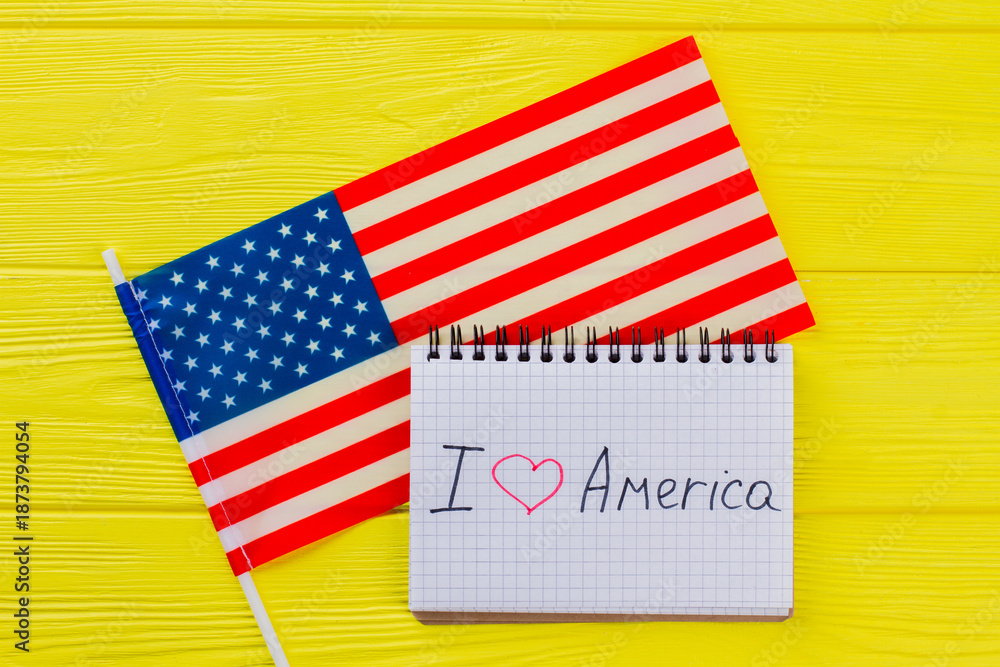 I ♡ America
Adobe Stock | #1873794054